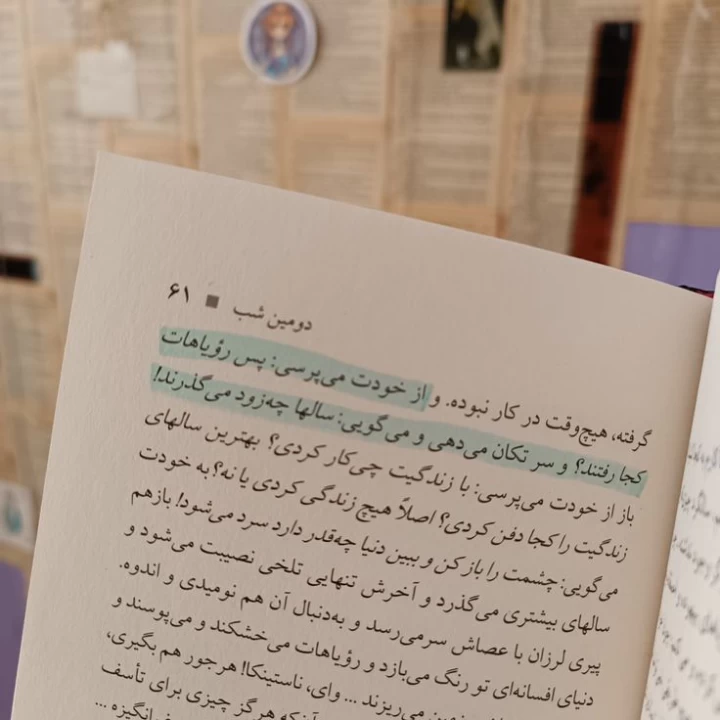 دومین شب ■ ۶۱
گرفته، هیچ‌وقت در کار نبوده. و از خودت می‌پرسی: پس رؤیاهات
کجا رفتند؟ و سر تکان می‌دهی و می‌گویی: سالها چه‌زود می‌گذرند!
باز از خودت می‌پرسی: با زندگیت چی‌کار کردی؟ بهترین سالهای
زندگیت را کجا دفن کردی؟ اصلاً هیچ زندگی کردی یا نه؟ به خودت
می‌گویی: چشمت را باز کن و ببین دنیا چه‌قدر دارد سرد می‌شود! بازهم
سالهای بیشتری می‌گذرد و آخرش تنهایی تلخی نصیبت می‌شود و
پیری لرزان با عصاش سرمی‌رسد و به‌دنبال آن هم نومیدی و اندوه.
دنیای افسانه‌ای تو رنگ می‌بازد و رؤیاهات می‌خشکند و می‌پوسند و
می‌ریزند ... وای، ناستینکا! هرجور هم بگیری،
آنکه هرگز چیزی برای تأسف